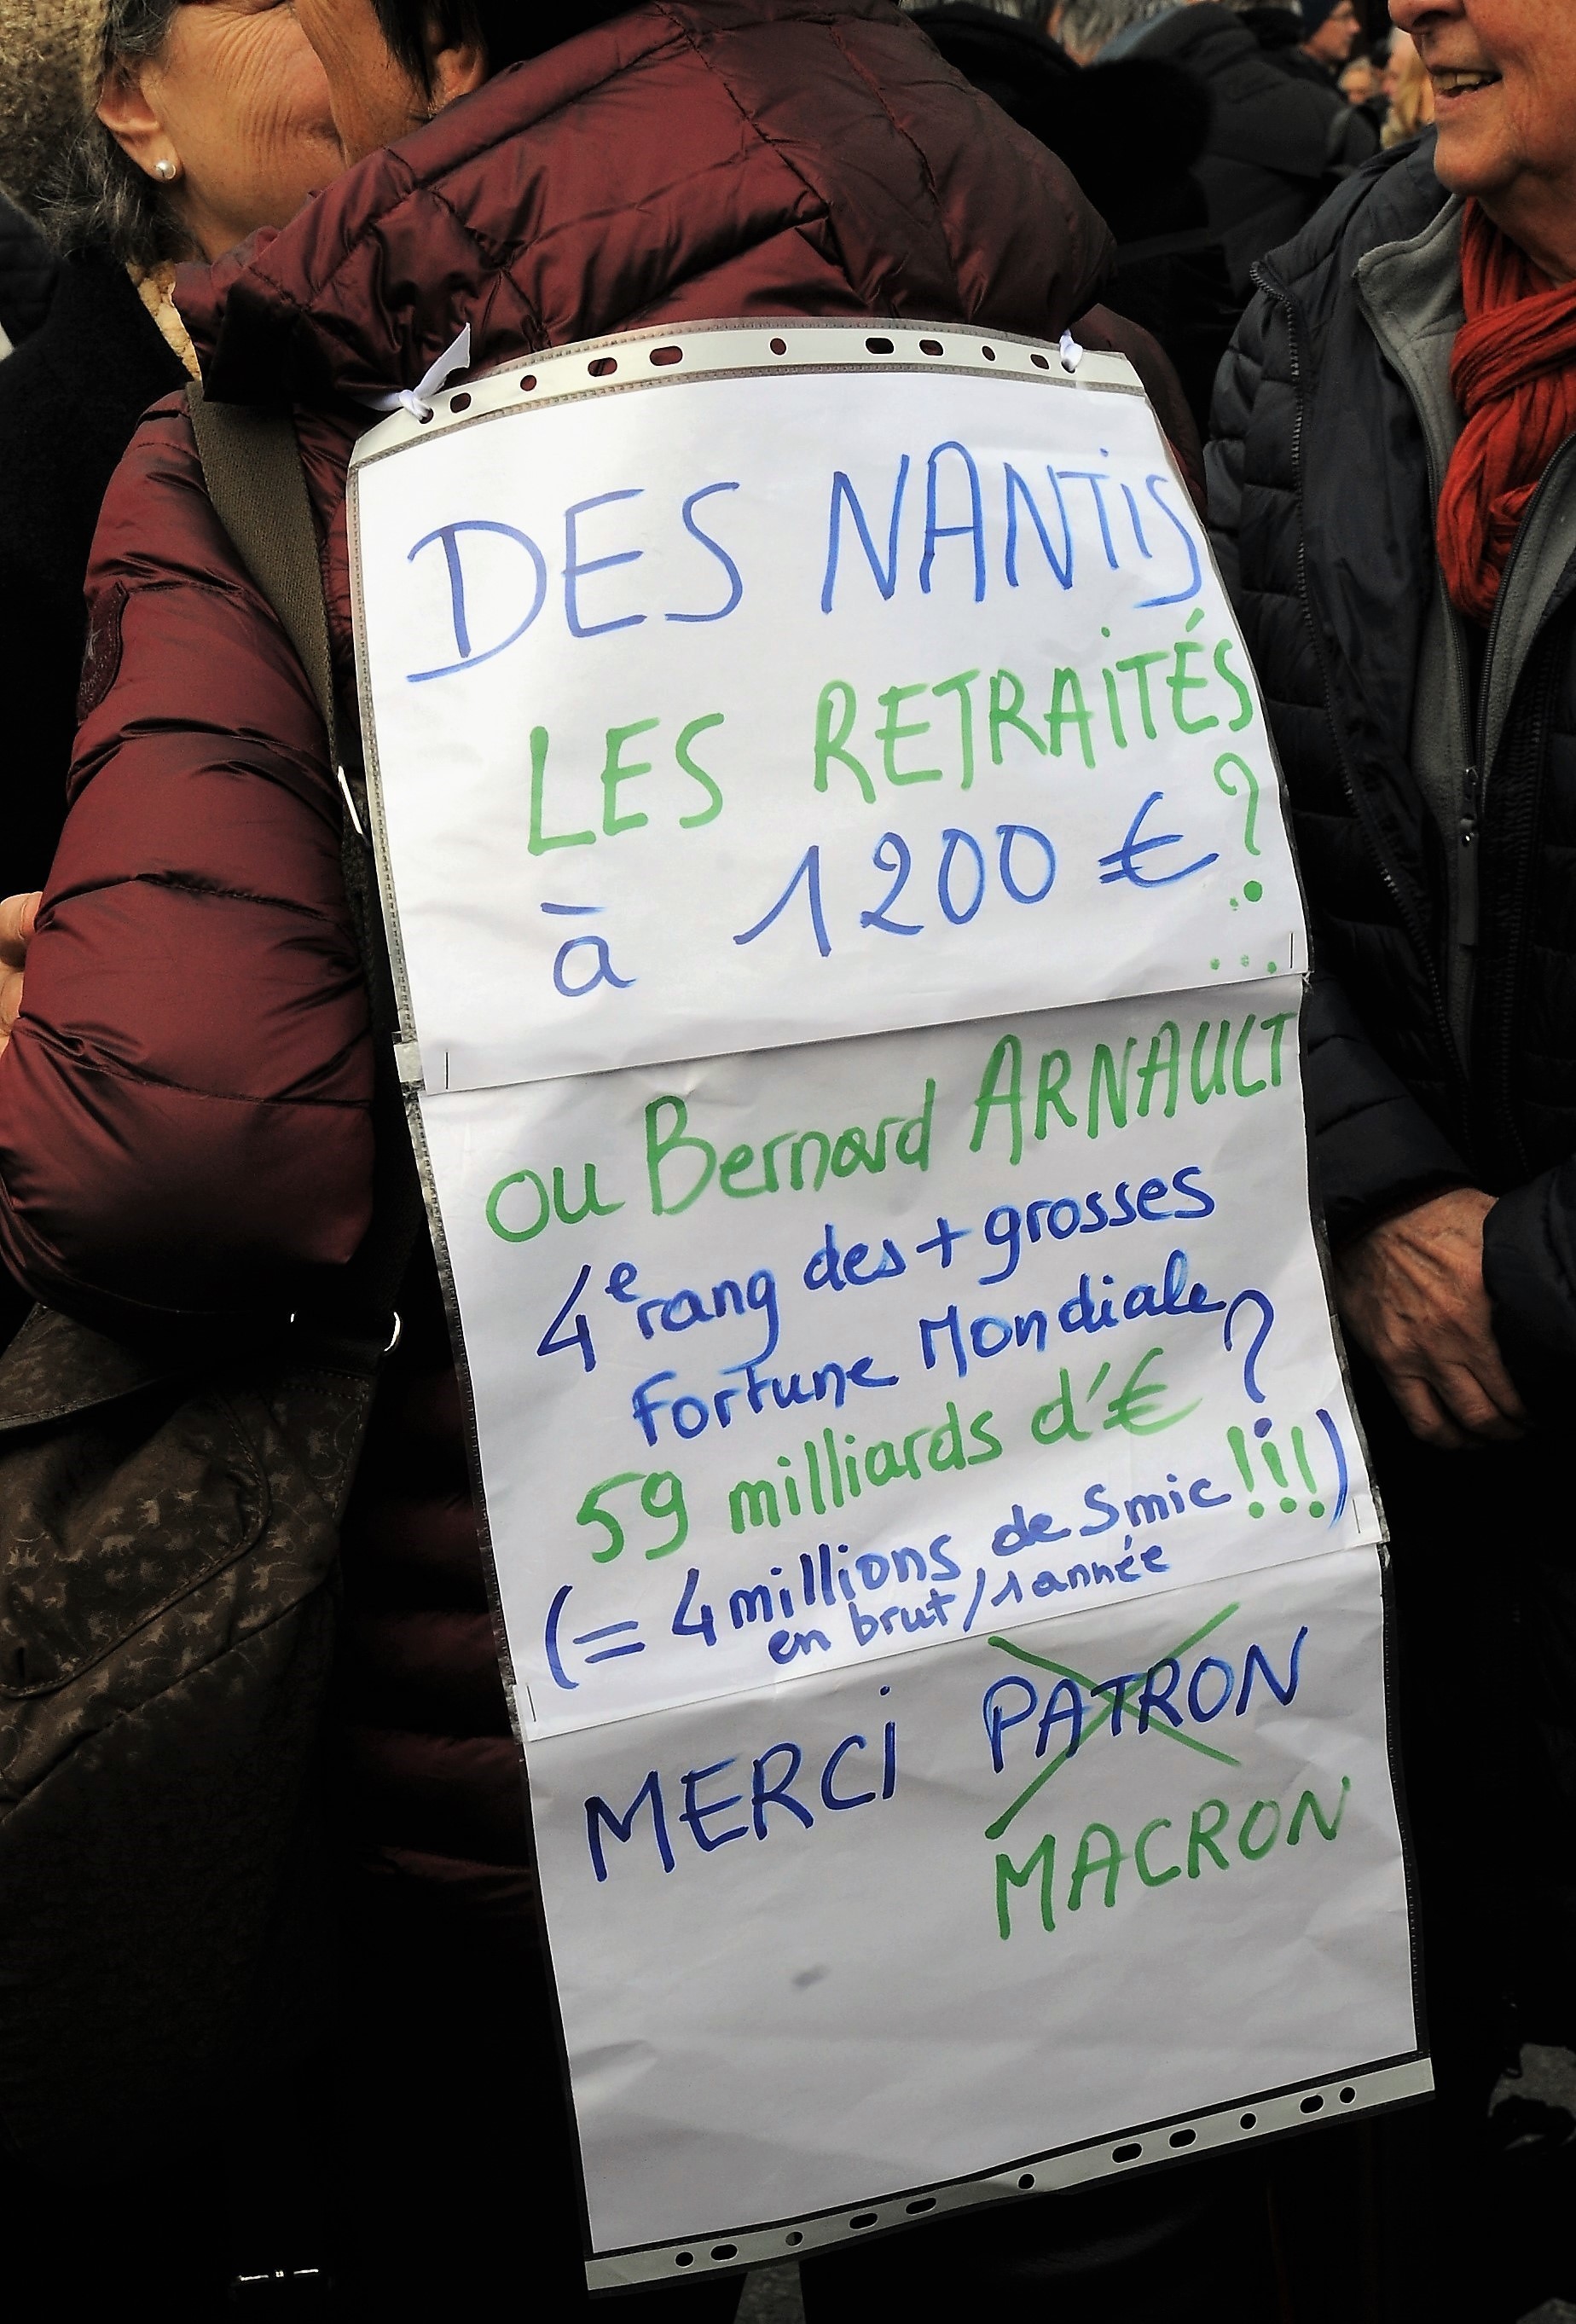 DES NANTIS
LES RETRAITÉS
à 1200 € ?
...
ou Bernard ARNAULT
4e rang des + grosses
Fortune Mondiale ?
59 milliards d'€
(= 4 millions de Smic !!!)
en brut / 1 année
MERCI PATRON
MACRON